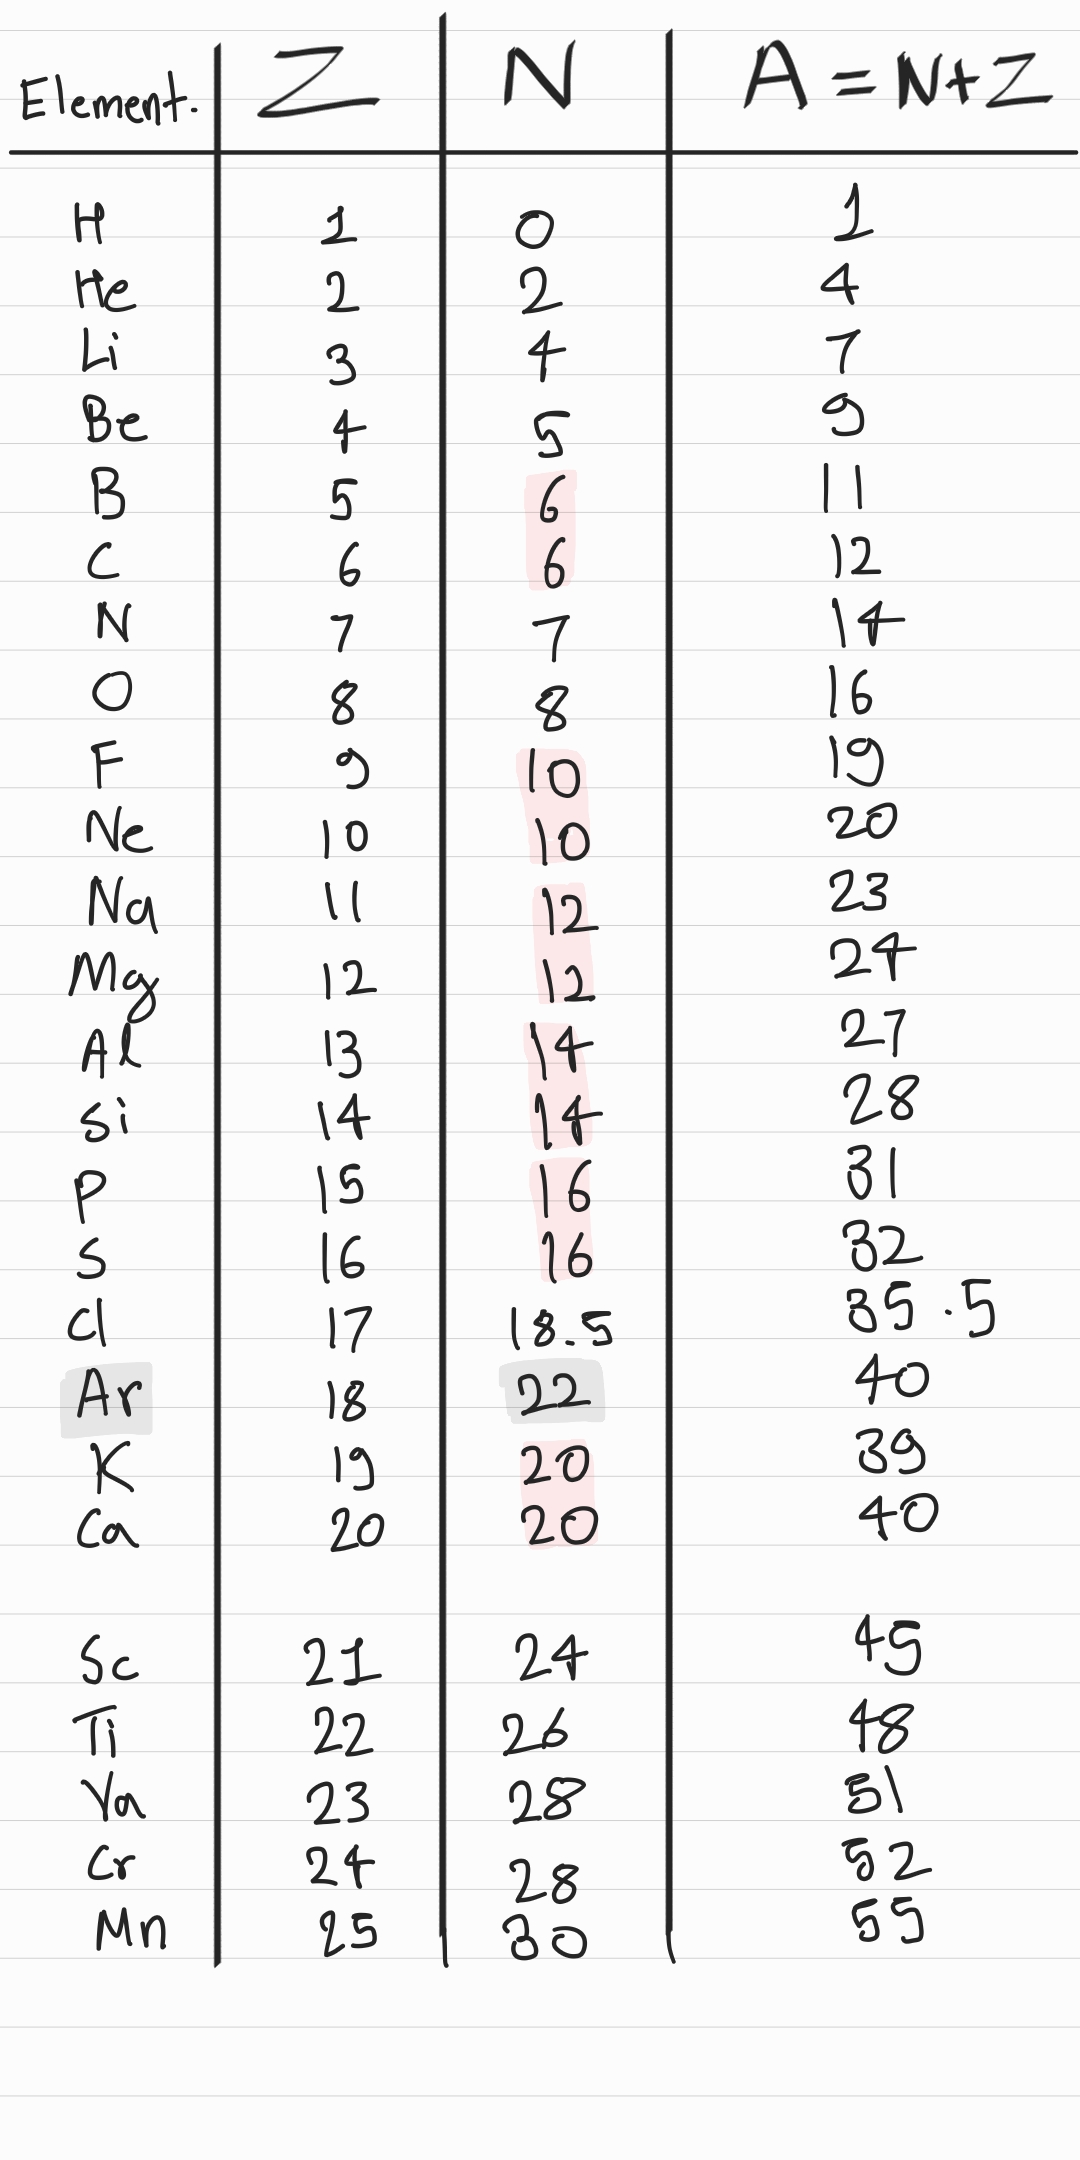 Element. Z N A = N+Z
H 1 0 1
He 2 2 4
Li 3 4 7
Be 4 5 9
B 5 6 11
C 6 6 12
N 7 7 14
O 8 8 16
F 9 10 19
Ne 10 10 20
Na 11 12 23
Mg 12 12 24
Al 13 14 27
Si 14 14 28
P 15 16 31
S 16 16 32
Cl 17 18.5 35.5
Ar 18 22 40
K 19 20 39
Ca 20 20 40
Sc 21 24 45
Ti 22 26 48
Va 23 28 51
Cr 24 28 52
Mn 25 30 55